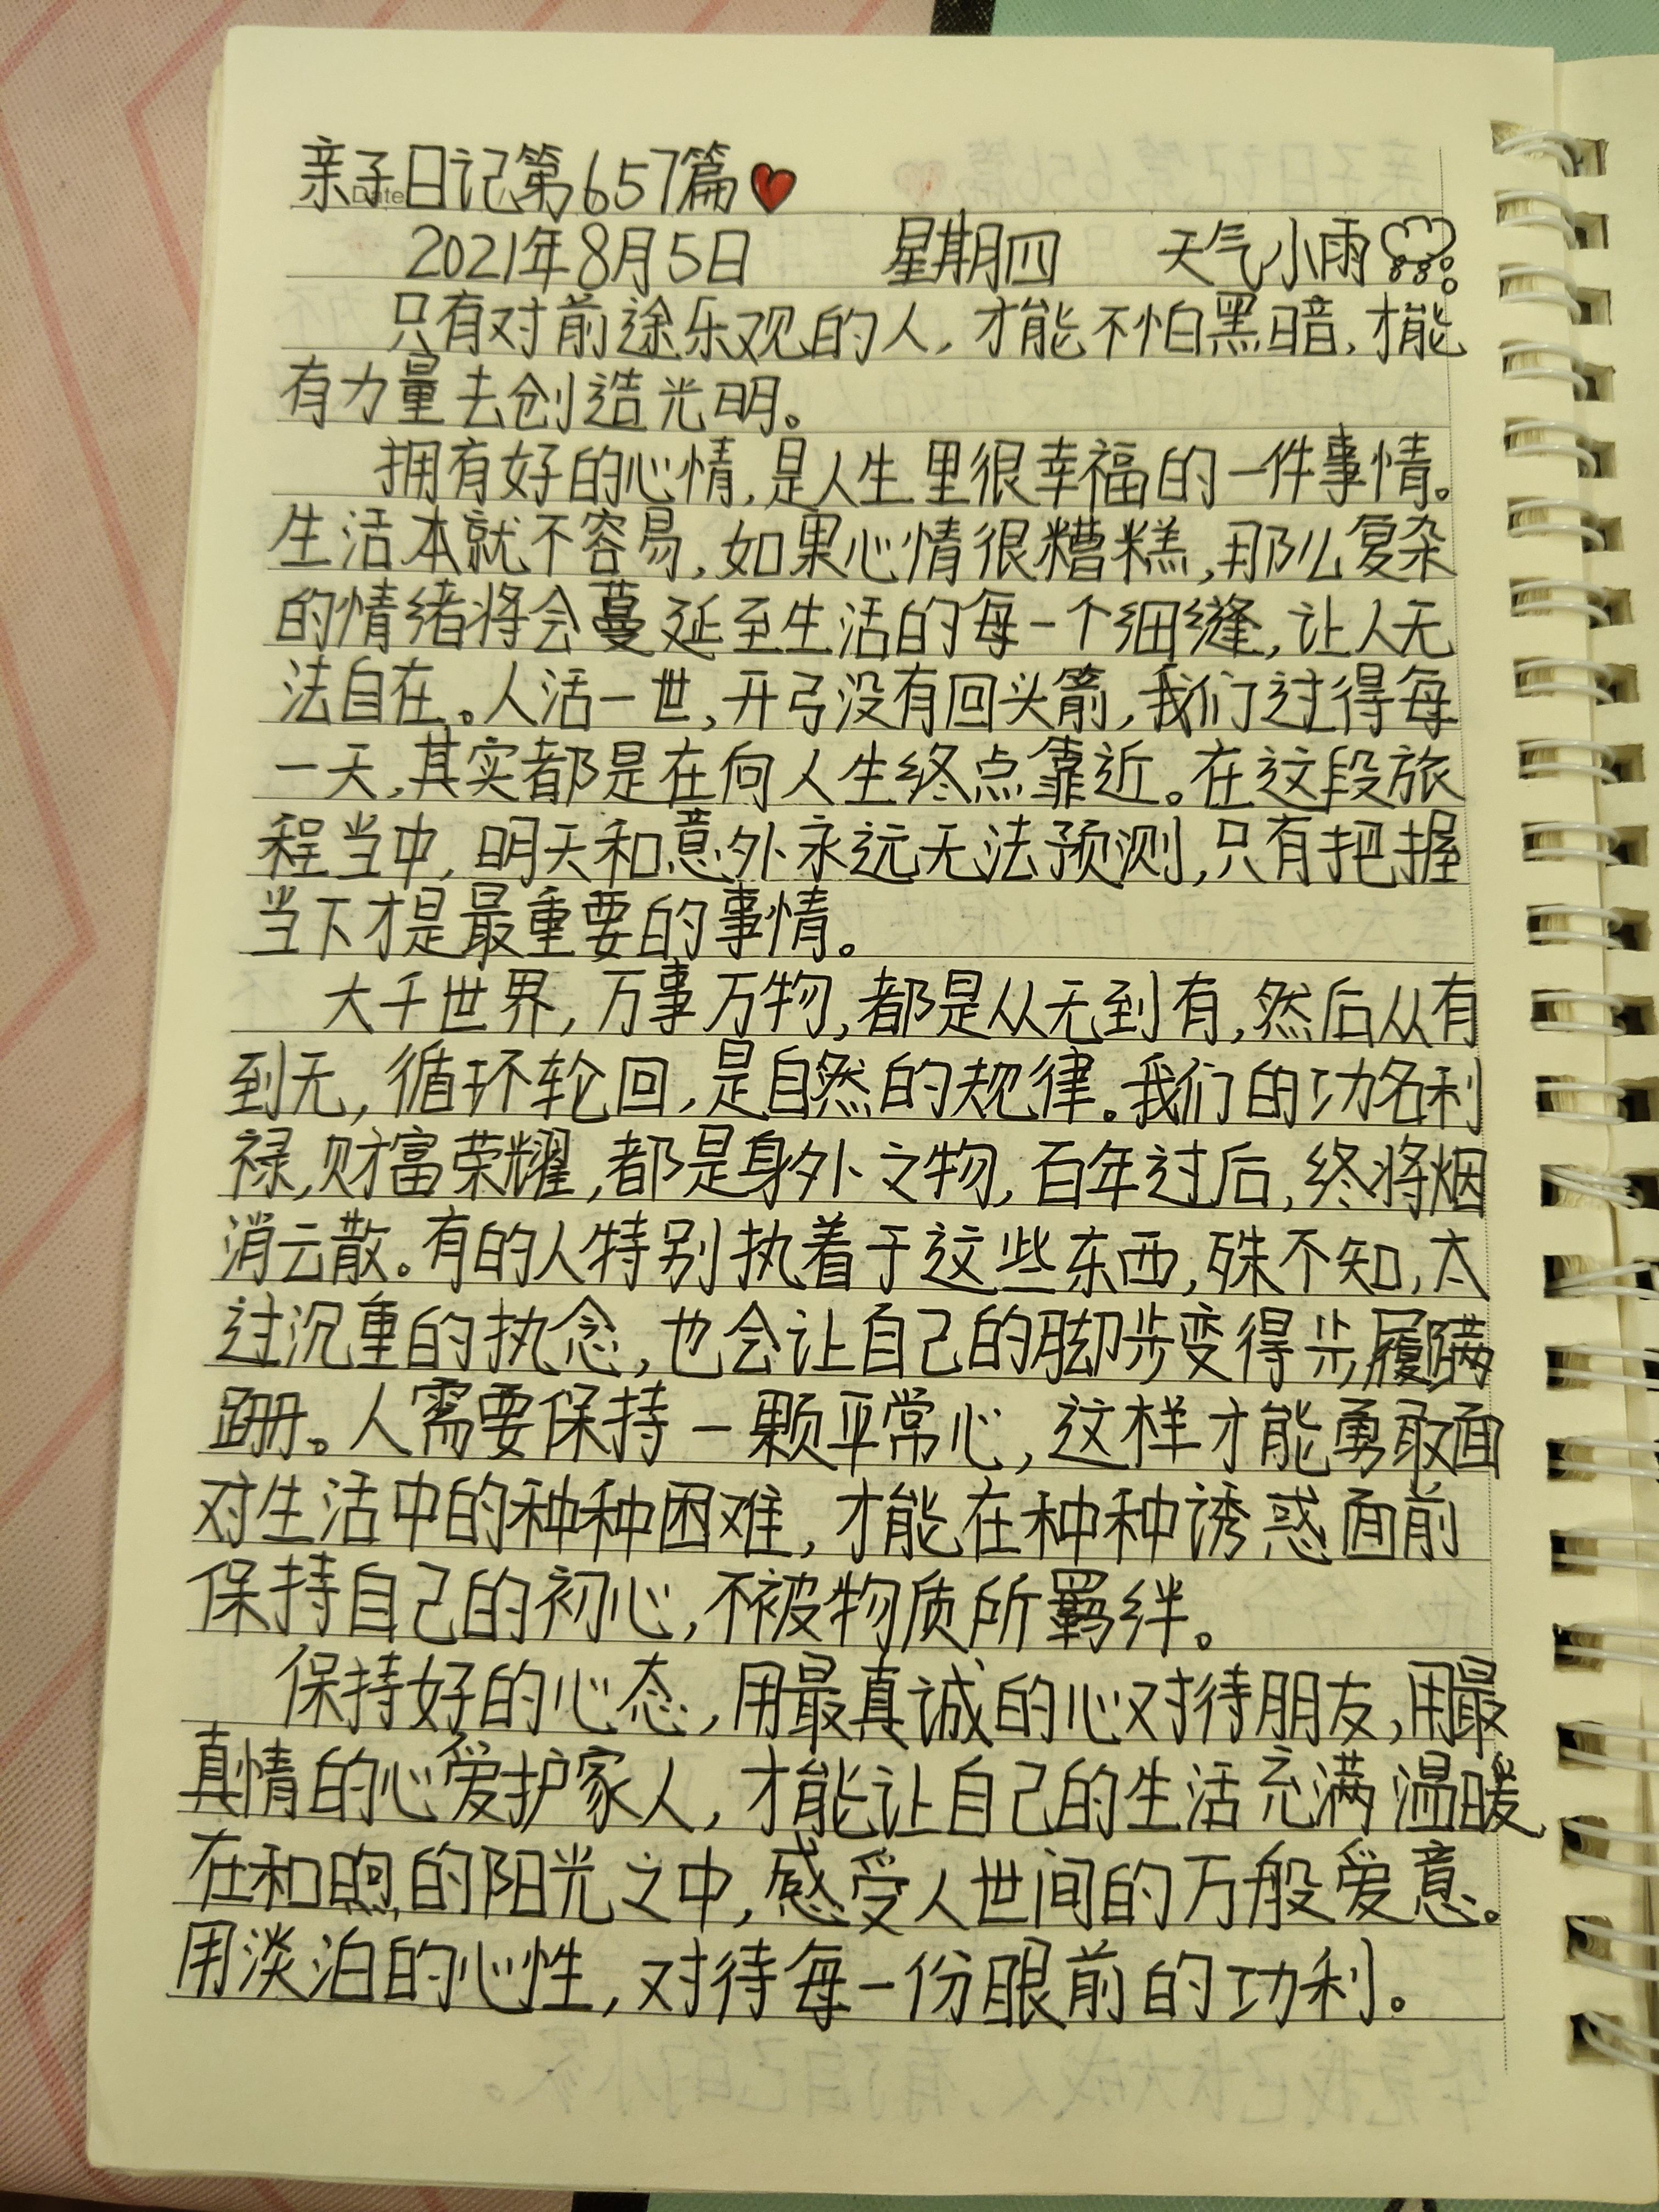 亲子日记第657篇
Date
2021年8月5日 星期四 天气小雨
只有对前途乐观的人,才能不怕黑暗,才能
有力量去创造光明。
拥有好的心情,是人生里很幸福的一件事情。
生活本就不容易,如果心情很糟糕,那么复杂
的情绪将会蔓延至生活的每一个细缝,让人无
法自在。人活一世,开弓没有回头箭,我们过得每
一天,其实都是在向人生终点靠近。在这段旅
程当中,明天和意外永远无法预测,只有把握
当下才是最重要的事情。
大千世界,万事万物,都是从无到有,然后从有
到无,循环轮回,是自然的规律。我们的功名利
禄,财富荣耀,都是身外之物,百年过后,终将烟
消云散。有的人特别执着于这些东西,殊不知,太
过沉重的执念,也会让自己的脚步变得步履蹒
跚。人需要保持一颗平常心,这样才能勇敢面
对生活中的种种困难,才能在种种诱惑面前
保持自己的初心,不被物质所羁绊。
保持好的心态,用最真诚的心对待朋友,用最
真情的心爱护家人,才能让自己的生活充满温暖,
在和煦的阳光之中,感受人世间的万般爱意。
用淡泊的心性,对待每一份眼前的功利。